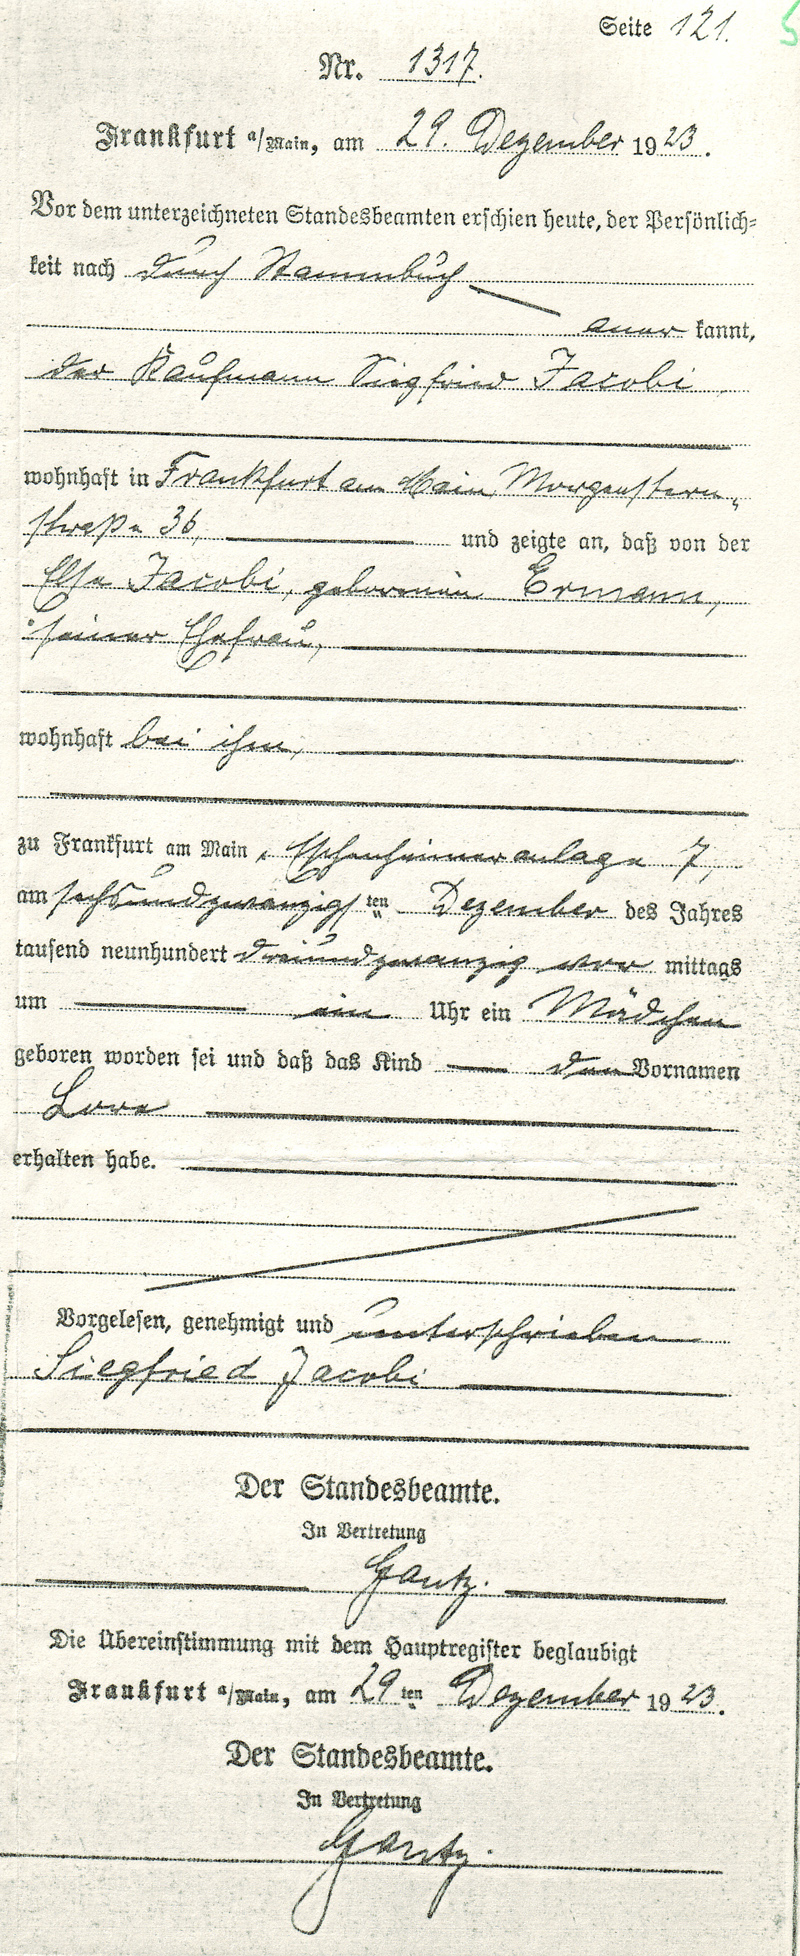 Seite 121.
Nr. 1317.
Frankfurt a/Main, am 29. Dezember 1923.
Vor dem unterzeichneten Standesbeamten erschien heute, der Persönlich=
keit nach durch Stammbuch
aner kannt,
der Kaufmann Siegfried Jacobi
wohnhaft in Frankfurt am Main, Morgenstern„
straße 36, und zeigte an, daß von der
Else Jacobi, geborenen Ermann,
seiner Ehefrau,
wohnhaft bei ihm,
zu Frankfurt am Main, Eschenheimeranlage 7,
am sechsundzwanzigsten Dezember des Jahres
tausend neunhundert dreiundzwanzig vor mittags
um ein Uhr ein Mädchen
geboren worden sei und daß das Kind den Vornamen
Lore
erhalten habe.
Vorgelesen, genehmigt und unterschrieben
Siegfried Jacobi
Der Standesbeamte.
In Vertretung
Gantz.
Die Übereinstimmung mit dem Hauptregister beglaubigt
Frankfurt a/Main, am 29ten Dezember 1923.
Der Standesbeamte.
In Vertretung
Gantz.